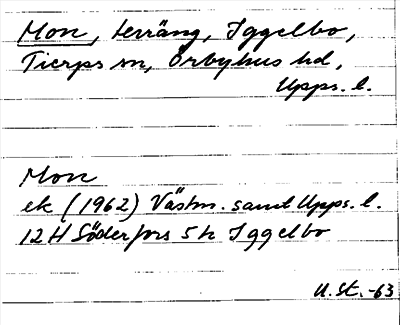 Mon, terräng, Iggelbo,
Tierps sn, Örbyhus hd,
Upps. l.
Mon
ek (1962) Västm. samt Upps. l.
12H Söderfors 5h Iggelbo
U. St. -63